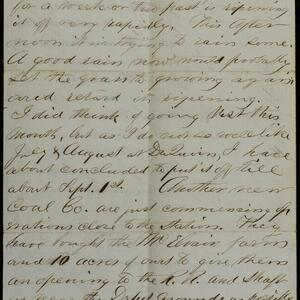 for a week or two past is ripening
it off very rapidly. This after
noon it is trying to rain some.
A good rain now would probably
set the grass to growing again
and retard its ripening.
I did think of going West this
month, but as I do not so well like
July & August at DuQuoin, I have
about concluded to put it off till
about Sept. 1st. Another new
Coal Co. are just commencing opp
nations close to the Station. They
have bought the Mc farm
and 10 acres of ours to give them
an opening to the R. R. and Shaft
is near the Depot grounds